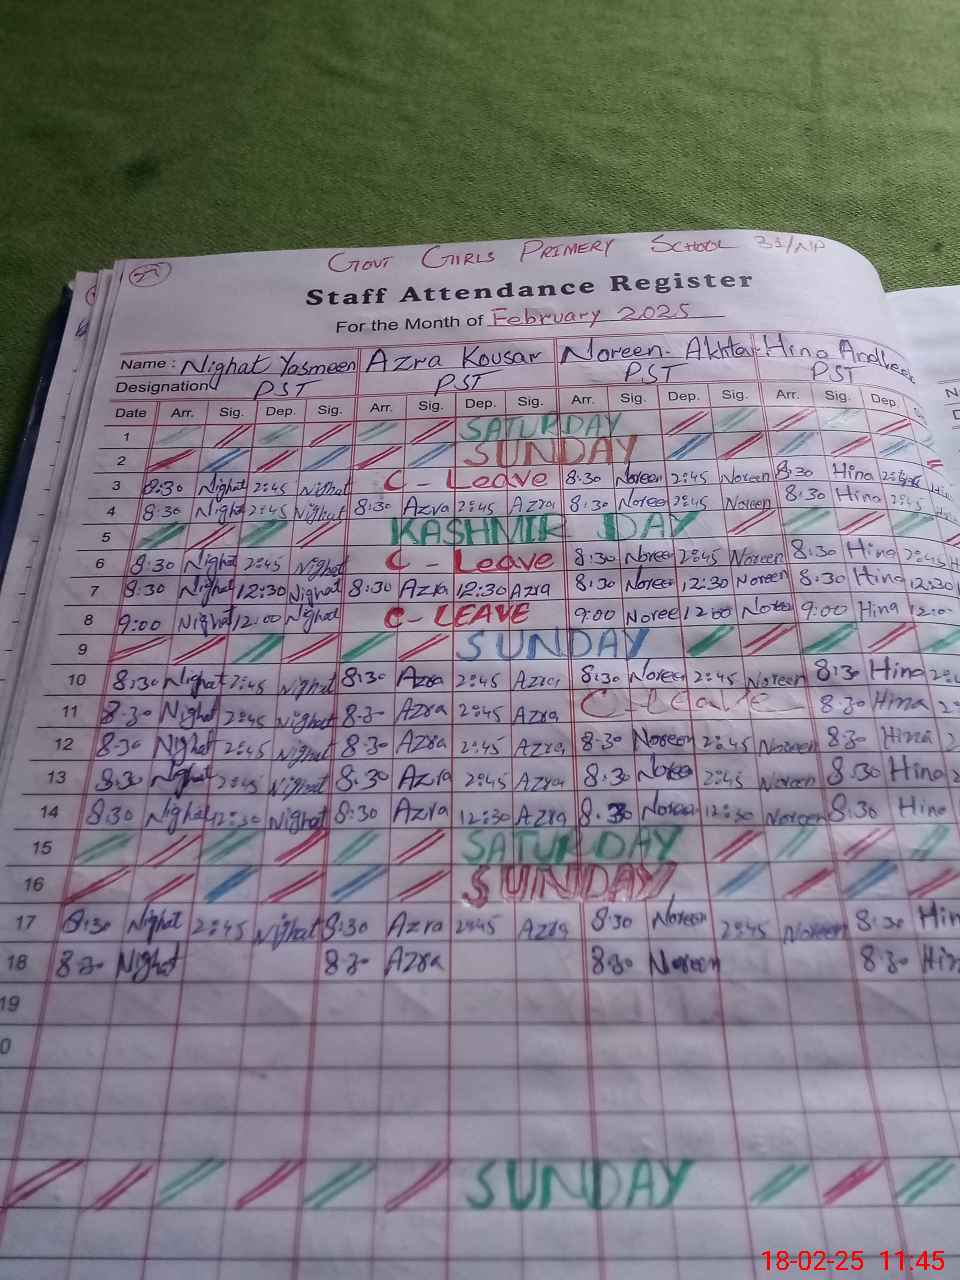 GOVT GIRLS PRIMERY SCHOOL 31/NP
Staff Attendance Register
For the Month of February 2025
Name : Nighat Yasmeen Azra Kousar Noreen Akhtar Hina Andleeb
Designation PST PST PST PST
Date Arr. Sig. Dep. Sig. Arr. Sig. Dep. Sig. Arr. Sig. Dep. Sig. Arr. Sig. Dep.
1 SATURDAY
2 SUNDAY
3 8:30 Nighat 2:45 Nighat C - Leave 8:30 Noreen 2:45 Noreen 8:30 Hina 2:45
4 8:30 Nighat 2:45 Nighat 8:30 Azra 2:45 Azra 8:30 Noreen 2:45 Noreen 8:30 Hina 2:45
5 KASHMIR DAY
6 8:30 Nighat 2:45 Nighat C - Leave 8:30 Noreen 2:45 Noreen 8:30 Hina 2:45
7 8:30 Nighat 12:30 Nighat 8:30 Azra 12:30 Azra 8:30 Noreen 12:30 Noreen 8:30 Hina 12:30
8 9:00 Nighat 12:00 Nighat C - LEAVE 9:00 Noree 12:00 Noreen 9:00 Hina 12:00
9 SUNDAY
10 8:30 Nighat 2:45 Nighat 8:30 Azra 2:45 Azra 8:30 Noreen 2:45 Noreen 8:30 Hina
11 8:30 Nighat 2:45 Nighat 8:30 Azra 2:45 Azra C-Leave 8:30 Hina
12 8:30 Nighat 2:45 Nighat 8:30 Azra 2:45 Azra 8:30 Noreen 2:45 Noreen 8:30 Hina
13 8:30 Nighat 2:45 Nighat 8:30 Azra 2:45 Azra 8:30 Noreen 2:45 Noreen 8:30 Hina
14 8:30 Nighat 12:30 Nighat 8:30 Azra 12:30 Azra 8:30 Noreen 12:30 Noreen 8:30 Hina
15 SATURDAY
16 SUNDAY
17 8:30 Nighat 2:45 Nighat 8:30 Azra 2:45 Azra 8:30 Noreen 2:45 Noreen 8:30 Hin
18 8:30 Nighat 8:30 Azra 8:30 Noreen 8:30 Hin
19
0
SUNDAY
18-02-25 11:45